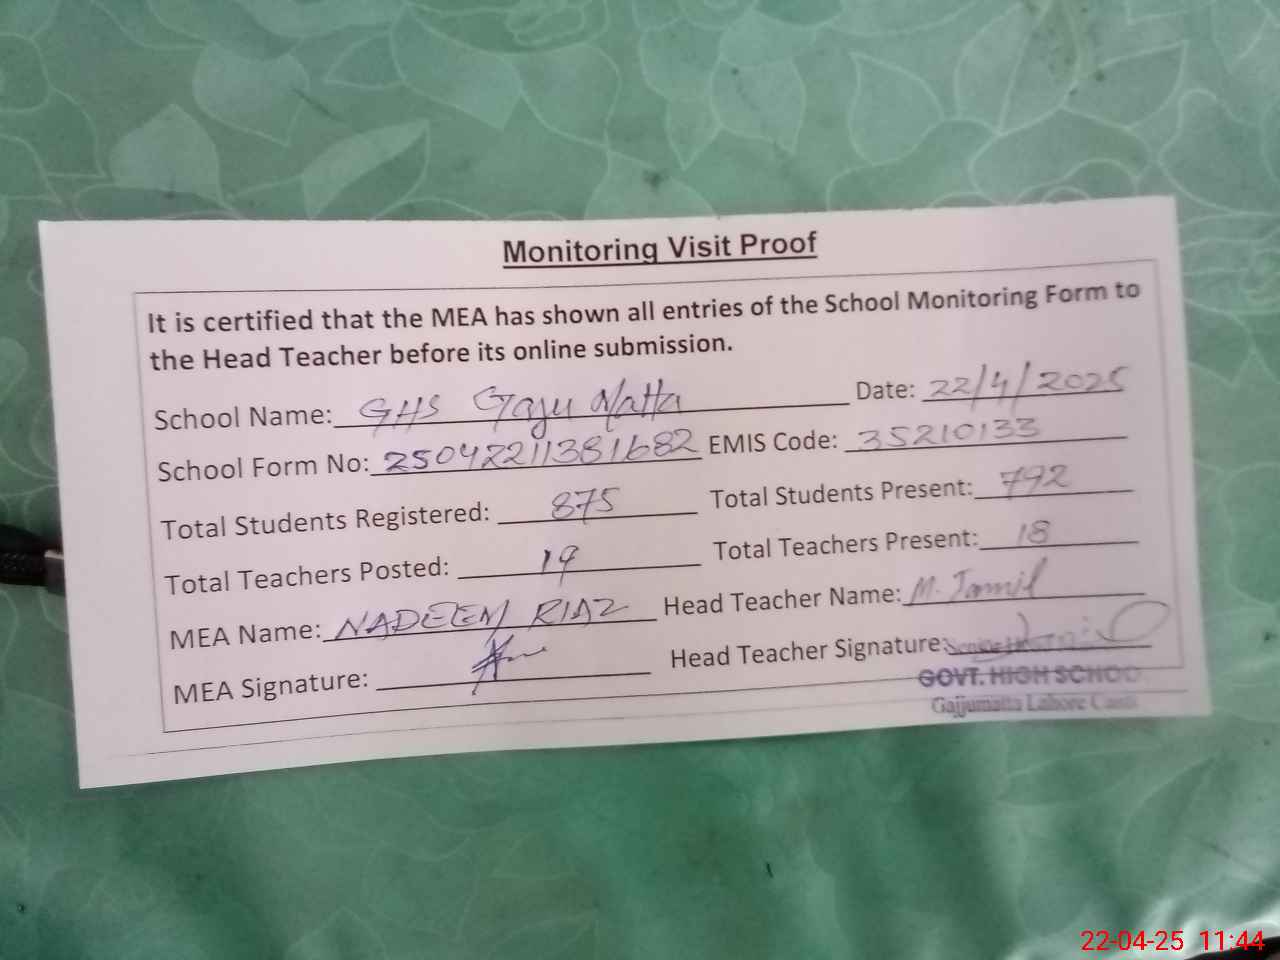 Monitoring Visit Proof
It is certified that the MEA has shown all entries of the School Monitoring Form to
the Head Teacher before its online submission.
School Name: GHS Gaju Matta Date: 22/4/2025
School Form No: 25042211381682 EMIS Code: 35210133
Total Students Registered: 875 Total Students Present: 792
Total Teachers Posted: 19 Total Teachers Present: 18
MEA Name: NADEEM RIAZ Head Teacher Name: M. Jamil
MEA Signature: Head Teacher Signature:
GOVT. HIGH SCHOO
Gajjumatta Lahore Cantt
22-04-25 11:44